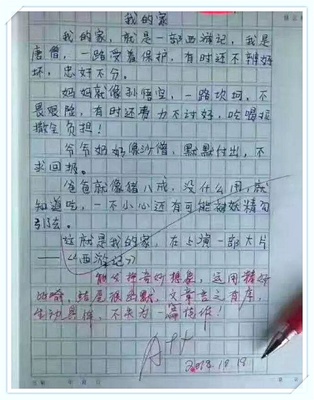 我的家
我的家，就是一部西游记，我是
唐僧，一路受着保护，有时还不辨好
坏，忠奸不分。
妈妈就像孙悟空，一路坎坷，不
畏艰险，有时还费力不讨好，吃喝拉
撒全负担！
爷爷奶奶像沙僧，默默付出，不
求回报。
爸爸就像猪八戒，没什么用，就
知道吃，一不小心还有可能被妖精勾
引去。
这就是我的家，在上演一部大片
——《西游记》
能发挥奇妙想象，运用精妙
比喻，结尾很幽默，文章言之有序，
生动具体，不失为一篇佳作！
2018.10.18